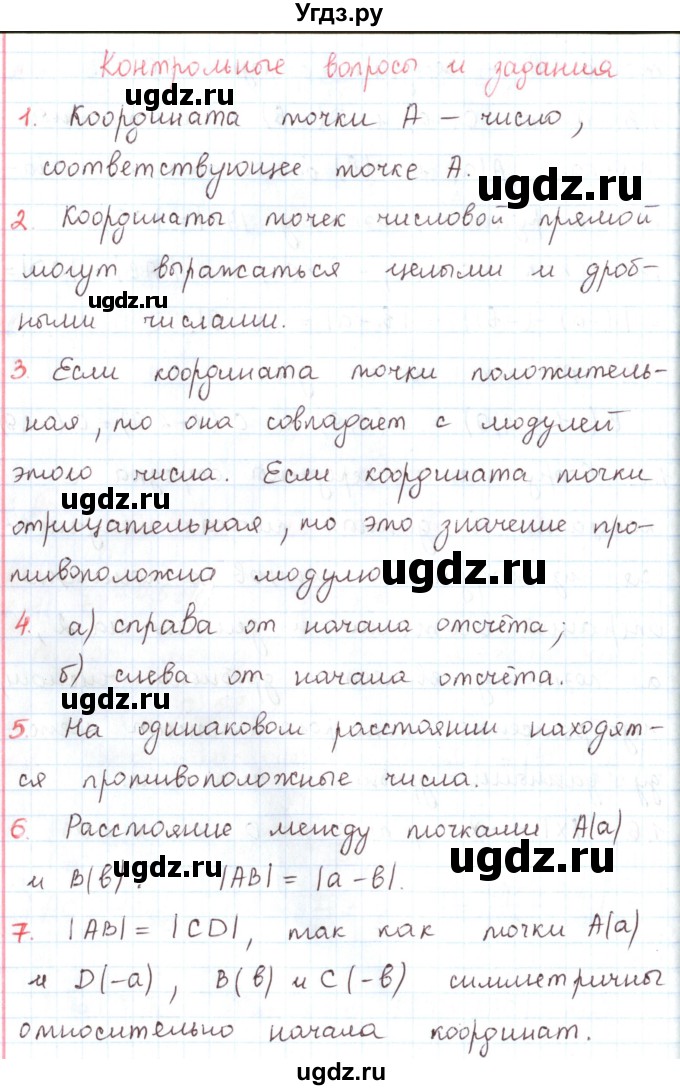 Угдз.ру
Контрольные вопросы и задания
ugdz.ru
1. Координата точки А – число,
соответствующее точке А.
ugdz.ru
2. Координаты точек числовой прямой
могут выражаться целыми и дроб-
ugdz.ru
ными числами.
3 Если координата точки положитель-
ная, то она совпадает с модулем
этого числа. Если координата точки
ugdz.ru
отрицательная, то это значение про-
тивоположно модулю
ugdz.ru
4. а) справа от начала отсчёта;
б) слева от начала отсчёта.
ugdz.ru
5. На одинаковом расстоянии находят-
ся противоположные числа.
6. Расстояние между точками А(а)
ugdz.ru
и В(в): |АВ| = |а – в|.
ugdz.ru
7. |АВ| = |CD|, так как точки А(а)
и D(-а), В(в) и С(-в) симметричны
относительно начала координат.
ugdz.ru